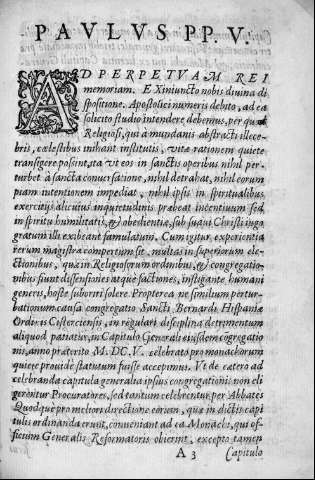 PAVLVS PP. V.
AD PERPETVAM REI
memoriam. EXiniuncto nobis diuina di
spositione. Apostolici muneris debito, ad ea
solicito studio intendere debemus, per quæ
Religiosi, qui à mundanis abstracti illece-
bris, cælestibus inhiant institutis, vitæ rationem quietè
transigere possint, ita vt eos in sanctis operibus nihil per-
turbet à sancta conuersatione, nihil detrahat, nihil eorum
piam intentionem impediat, nihil ipsis in spiritualibus
exercitijs alicuius inquietudinis præbeat incentiuum sed
in spiritu humilitatis, & obedientiæ, sub suaui Christi iugo
gratum illi exibeant famulatum. Cum igitur experientia
rerum magistra compertum sit, multas in superiorum ele-
ctionibus, quæ in Religiosorum ordinibus, & congregatio-
nibus fiunt dissensiones atque factiones, instigante humani
generis, hoste suboriri solere. Propterea ne similium pertur-
bationum causa congregatio Sancti Bernardi Hispaniæ
Ordinis Cisterciensis, in regulari disciplina detrimentum
aliquod patiatur, in Capitulo Generali eiusdem cõgregatio
nis, anno præterito M. DC. V. celebrato pro monachorum
quiete prouidè statutum fuisse accepimus. Vt de cætero ad
celebranda capitula generalia ipsius congregationis non eli
gerentur Procuratores, sed tantum celebrentur per Abbates
Quodque pro meliori directione eorum, quæ in dictis capi-
tulis ordinanda erunt, conueniant ad ea Monachi, qui of-
ficium Generalis Reformatoris obierint, excepto tamen
A 3 Capitulo